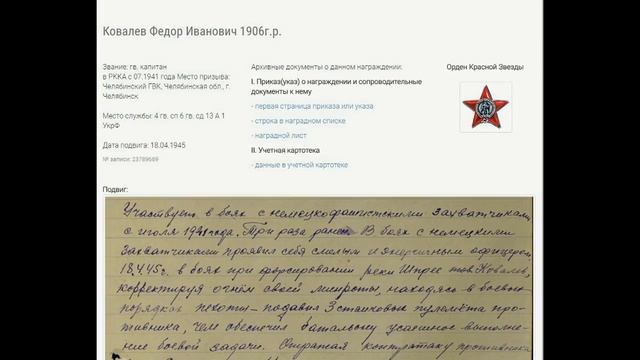 Ковалев Федор Иванович 1906г.р.
Звание: гв. капитан
в РККА с 07.1941 года Место призыва:
Челябинский ГВК, Челябинская обл., г.
Челябинск
Место службы: 4 гв. сп 6 гв. сд 13 А 1
УкрФ
Дата подвига: 18.04.1945
№ записи: 23789689
Архивные документы о данном награждении:
I. Приказ(указ) о награждении и сопроводительные
документы к нему
- первая страница приказа или указа
- строка в наградном списке
- наградной лист
II. Учетная картотека
- данные в учетной картотеке
Орден Красной Звезды
Подвиг:
Участвует в боях с немецкофашистскими захватчиками
с июля 1941 года. Три раза ранен. В боях с немецкими
захватчиками проявил себя смелым и энергичным офицером.
18.4.45г. в боях при форсировании реки Шпрее тов. Ковалев,
корректируя огнём своей минроты, находясь в боевых
порядках пехоты – подавил 3 станковых пулемёта про-
тивника, чем обеспечил батальону успешное выполне-
ние боевой задачи. Отражая контратаку противника